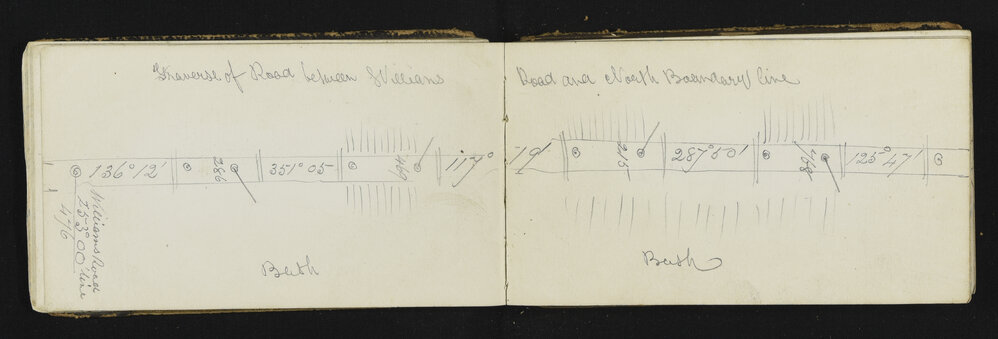 Traverse of Road between Williams Road and North Boundary line
136° 12'
286
351° 05
469
117° 19'
215
287° 50'
408
125° 47'
Williams Road
253° 00' line
476
Bush
Bush